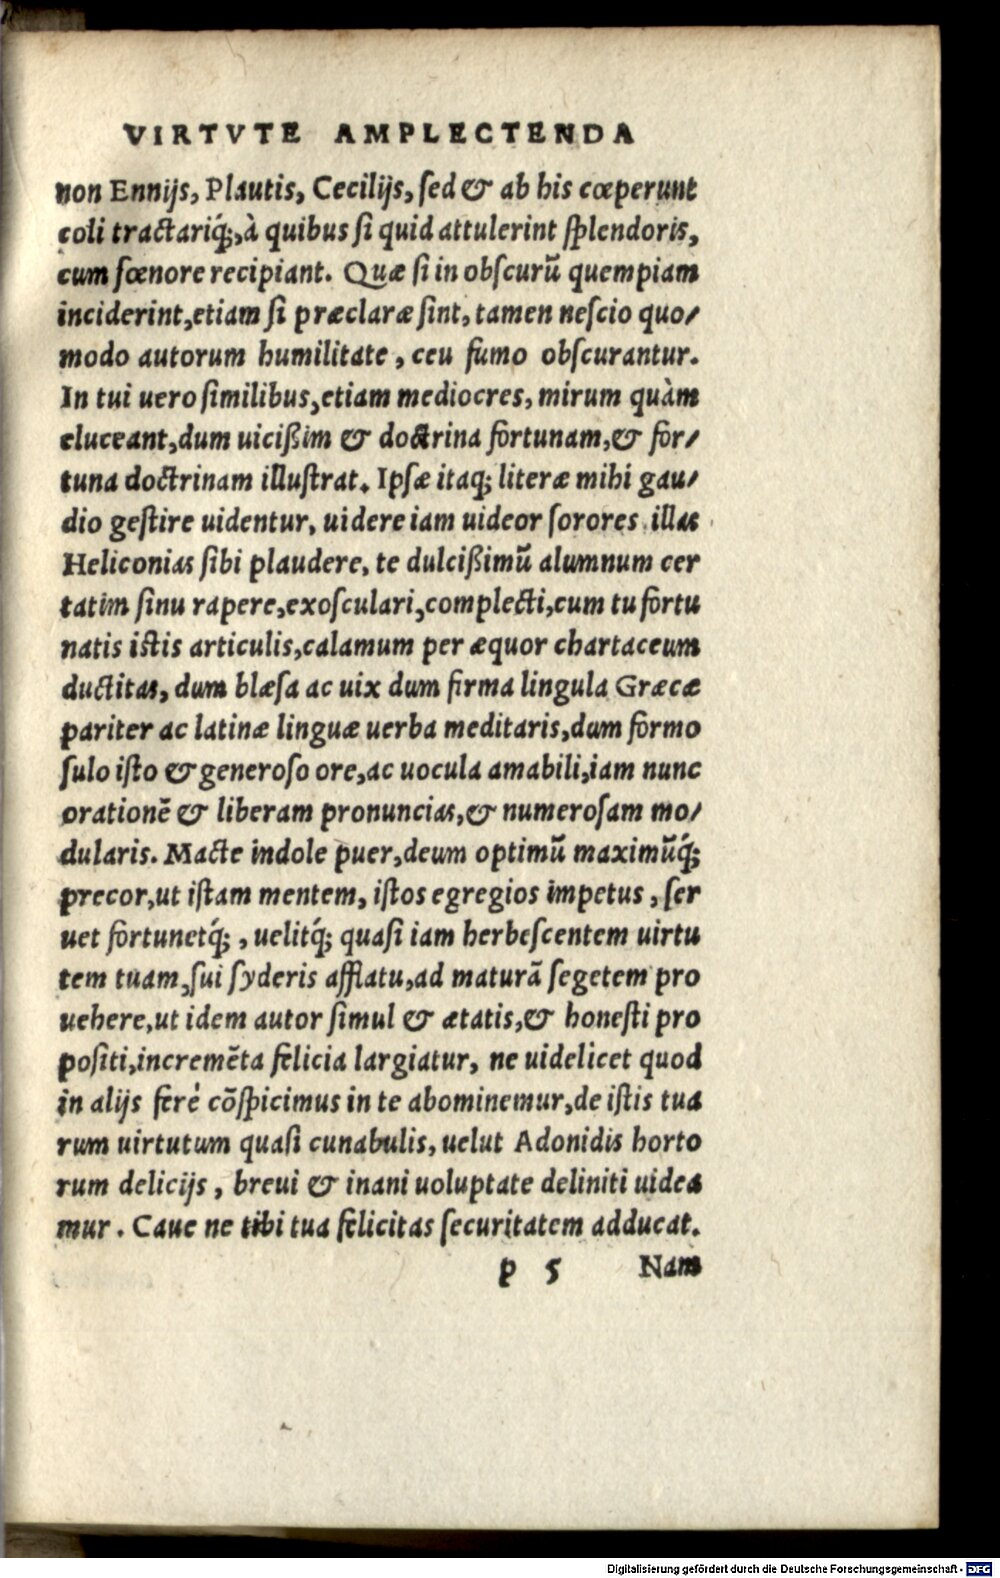 VIRTVTE AMPLECTENDA
non Ennijs, Plautis, Cecilijs, ſed & ab his cœperunt
coli tractariq́;, à quibus ſi quid attulerint ſplendoris,
cum fœnore recipiant. Quæ ſi in obſcurū quempiam
inciderint, etiam ſi præclaræ ſint, tamen neſcio quo/
modo autorum humilitate, ceu fumo obſcurantur.
In tui uero ſimilibus, etiam mediocres, mirum quàm
eluceant, dum uicißim & doctrina fortunam, & for/
tuna doctrinam illuſtrat. Ipſæ itaq; literæ mihi gau/
dio geſtire uidentur, uidere iam uideor ſorores illas
Heliconias ſibi plaudere, te dulcißimū alumnum cer
tatim ſinu rapere, exoſculari, complecti, cum tu fortu
natis iſtis articulis, calamum per æquor chartaceum
ductitas, dum blæſa ac uix dum firma lingula Græcæ
pariter ac latinæ linguæ uerba meditaris, dum formo
ſulo iſto & generoſo ore, ac uocula amabili, iam nunc
orationē & liberam pronuncias, & numeroſam mo/
dularis. Macte indole puer, deum optimū maximūq́;
precor, ut iſtam mentem, iſtos egregios impetus, ſer
uet fortunetq́;, uelitq́; quaſi iam herbeſcentem uirtu
tem tuam, ſui ſyderis afflatu, ad maturā ſegetem pro
uehere, ut idem autor ſimul & ætatis, & honeſti pro
poſiti, incremēta felicia largiatur, ne uidelicet quod
in alijs ferè cōſpicimus in te abominemur, de iſtis tua
rum uirtutum quaſi cunabulis, uelut Adonidis horto
rum delicijs, breui & inani uoluptate deliniti uidea
mur. Caue ne tibi tua felicitas ſecuritatem adducat.
p 5 Nam
Digitalisierung gefördert durch die Deutsche Forschungsgemeinschaft - DFG